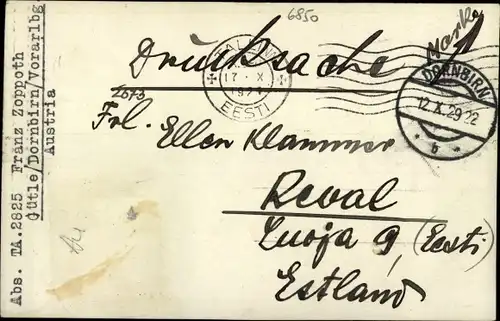 6850
Drucksache
Marke
TALLINN
17 · X
EESTI
DORNBIRN
12.X.29 22
* b *
Frl. Ellen Klammer
Reval
Luoja 9, (Eesti)
Estland
Abs. TA.2825 Franz Zoppoth
Gütle/Dornbirn/Vorarlbg
Austria